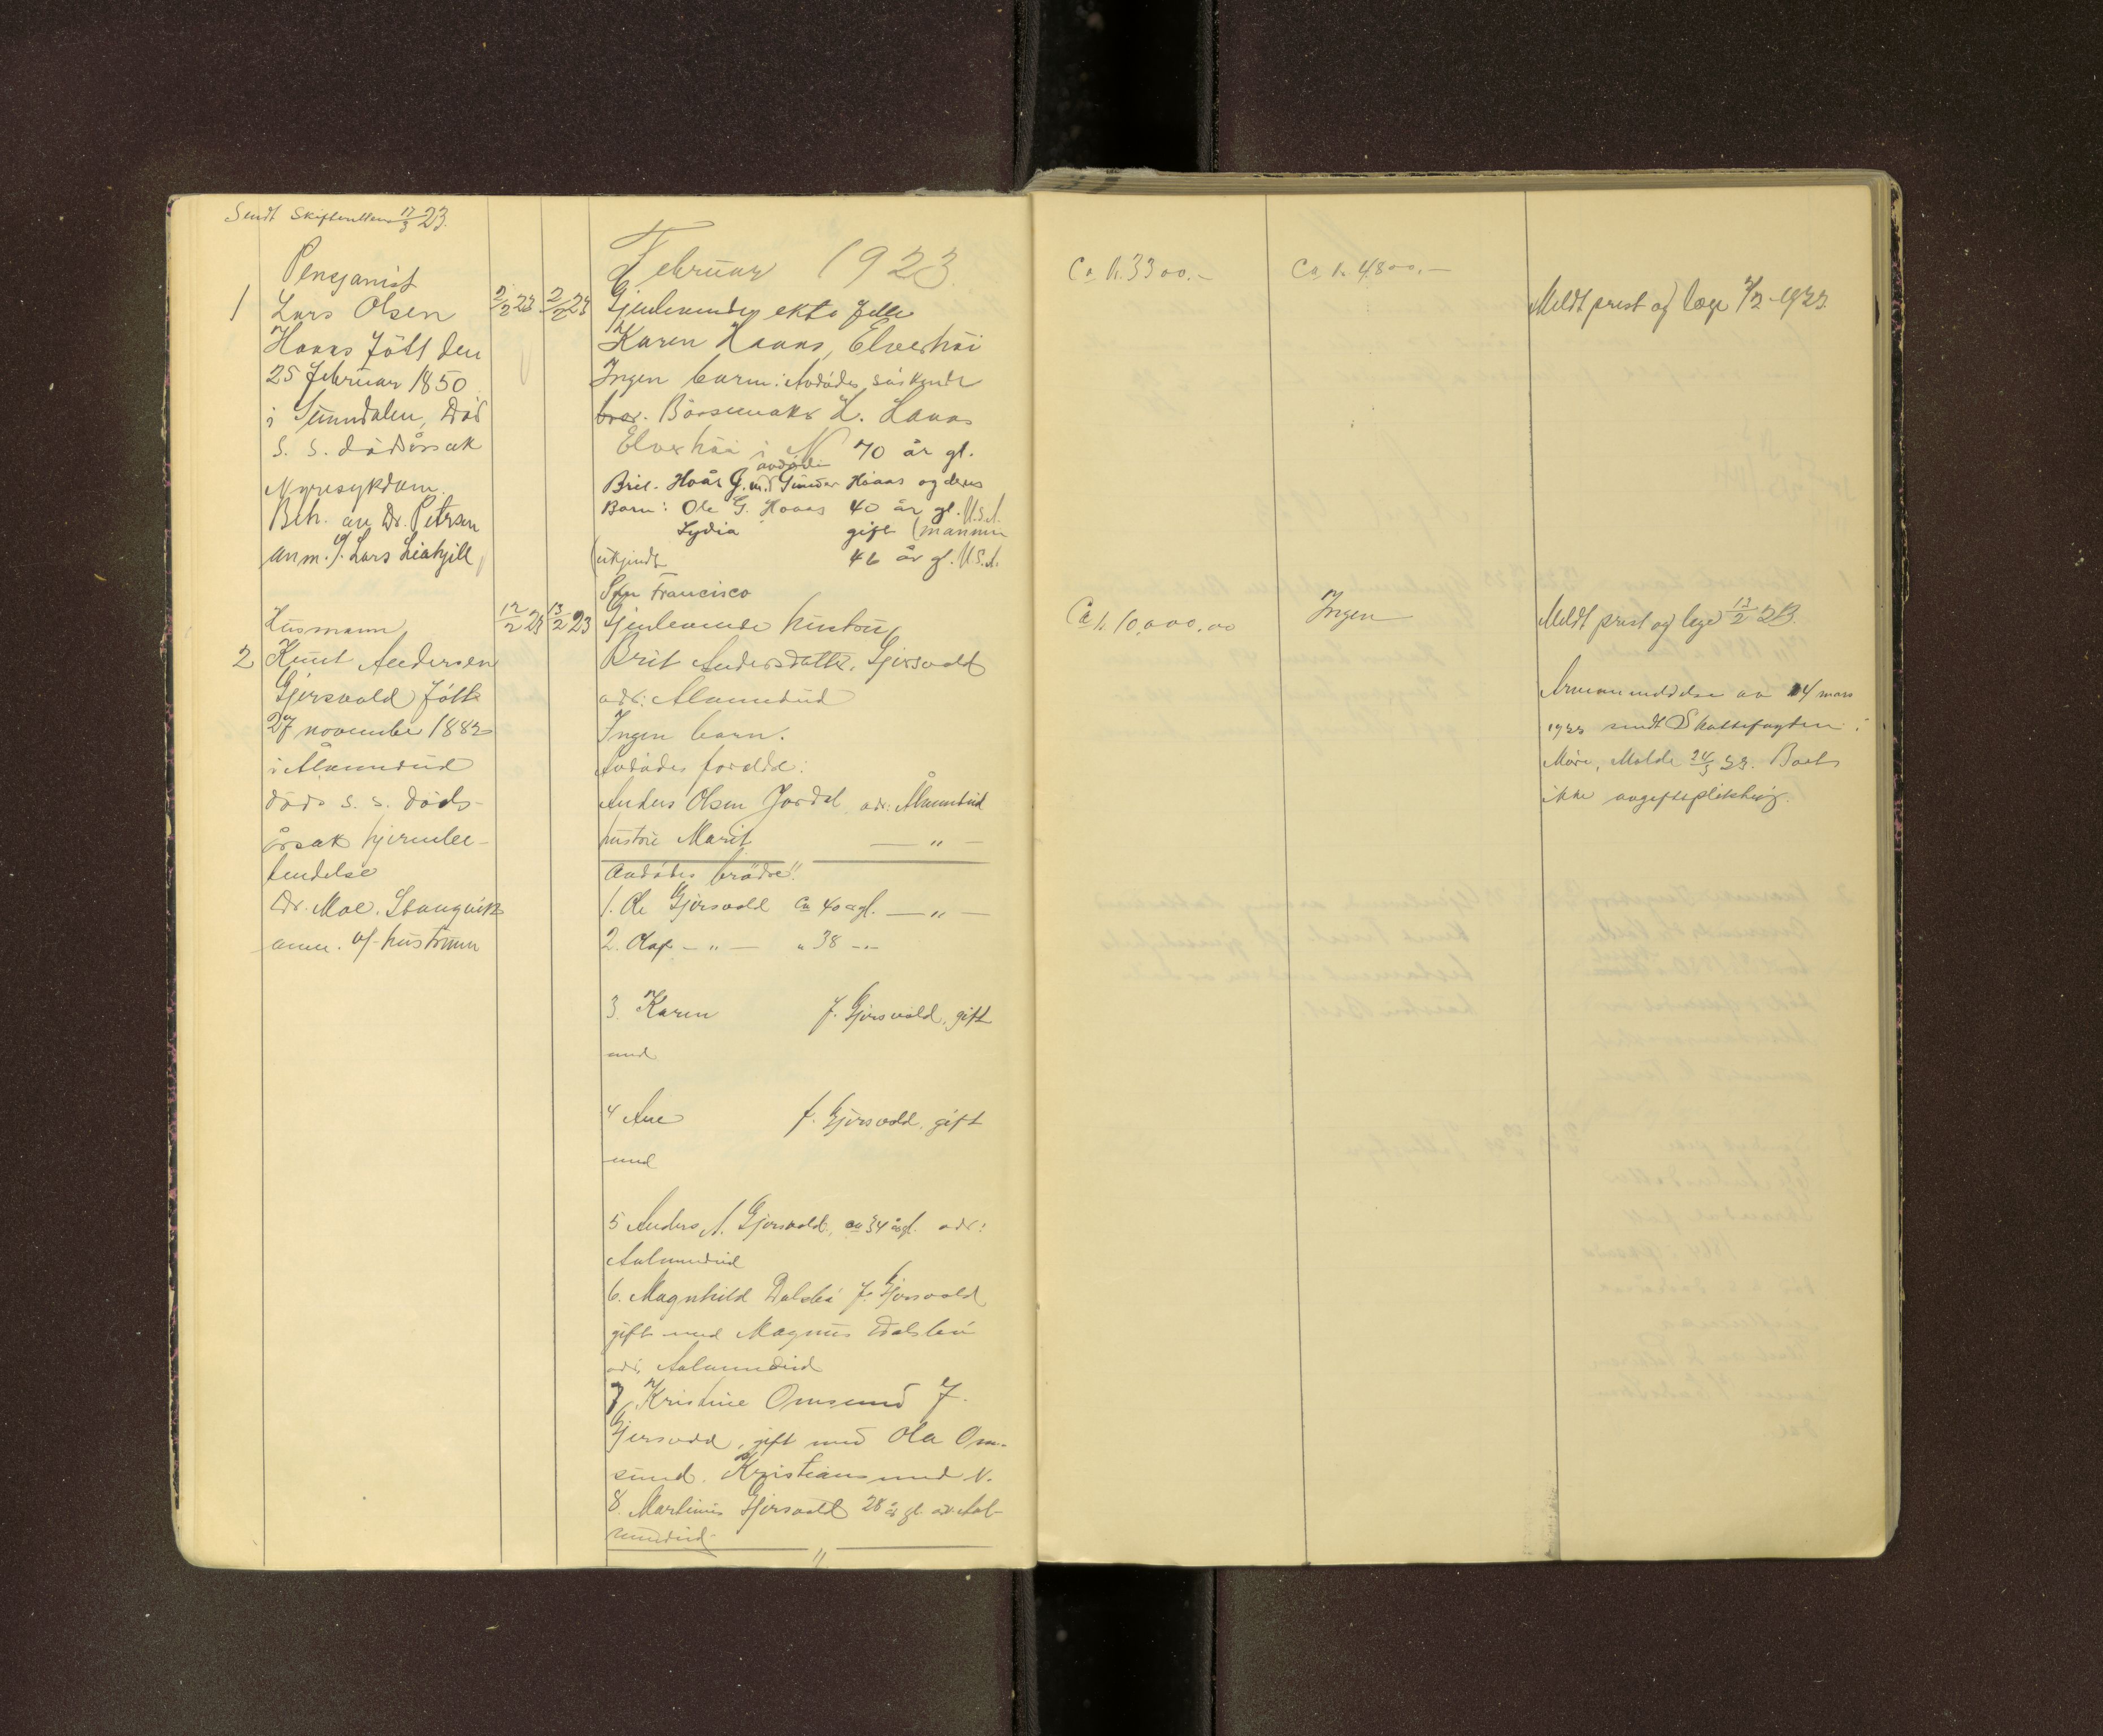 Sendt Skifteretten 17/3 23.
Februar 1923.
Pensjonist
1 Lars Olsen 2/2 23 2/2 23
Hoaas fött den
25 februar 1850
i Sunndalen, Död
s. s. dödsårsak
Nyresykdom.
Beh. av Dr. Petersen
anm. f. Lars Liahjell
Gjenlevende ektefelle
Karen Haaas, Elverhöi
Ingen barn: Avdödes söskende
bror. Börsemaker H. Haaas
Elverhöi i N 70 år gl.
avdöde
Brit. Hoås G. m. Gunder Hoaas og deres
Barn: Ole G. Hoaas 40 år gl. U.S.A.
Lydia gift (mannen
(ukjendt 46 år gl. U.S.A.
San Francisco
Ca k. 3300.-
Ca k. 4800.-
Meldt prest og læge 7/2-1923.
Husmann 12/2 23 13/2 23
2 Knut Andersen
Gjersvold fött
27 november 1882
i Ålvundeid
död s. s. döds-
årsak hjernebe-
tendelse
Dr. Moe. Stangvik
anm. af hustruen
Gjenlevende hustru
Brit Andersdatter Gjersvold
adr: Alvundeid
Ingen barn.
Avdödes foreldre:
Anders Olsen Jordal adr: Ålvundeid
hustru Marit — " —
Avdödes brödre:
1. Ole Gjersvold ca 40 a gl. — " —
2. Olaf — " — " 38 — " —
3. Karen f. Gjersvold, gift
med
4 Ane f. Gjersvold, gift
med
5 Anders A. Gjersvold, ca 34 år gl. adr:
Aalvundeid
6. Magnhild Dalsbö f. Gjersvold
gift med Magnus Dalsbö
adr. Aalvundeid
7, Kristine Omsund f.
Gjersvold, gift med Ola Om-
sund. Kristiansund N.
8. Martinus Gjersvold 28 år gl. adr Aal-
vundeid
Ca k. 10,000.00
Ingen
Meldt prest og læge 13/2 23.
Arveanmeldelse av 14 mars
1923 sendt Skattefogden i
Möre, Molde 24/3 23. Boet
ikke avgiftspliktig.